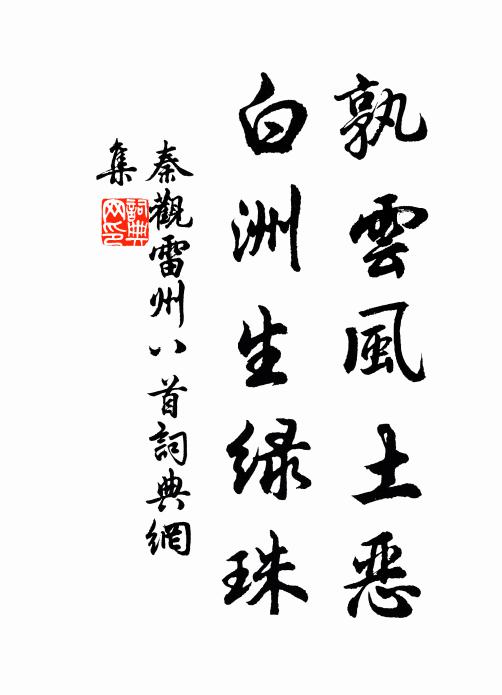 孰雲風土惡
白洲生緑珠
秦觀雷州八首詞典網
集
詞典網印